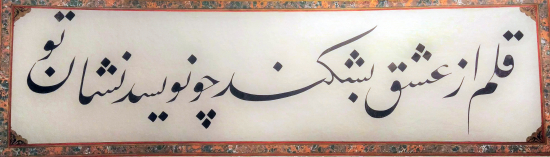 قلم از عشق بشکند چو نویسد نشان تو